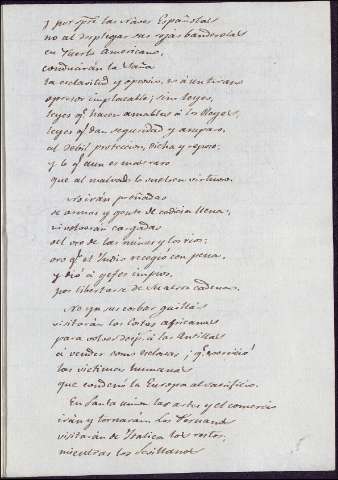 y por qre las naves Españolas
no al desplegar sus rojas banderolas
en Puerto Americano,
conducirán la saña
la esclavitud y opresión, ni á un tirano
opresor implacable; sino leyes,
leyes qe hacen amables á los Reyes,
leyes qe dan seguridad y amparo,
al debil proteccion, dicha y reposo;
y lo qe aun es mas raro
que al malvado lo vuelven virtuoso.
No irán preñadas
de armas y gente de codicia llena;
ni volverán cargadas
del oro de las minas y los rios;
oro qe el Indio recogió con pena,
y dió á gefes impios,
por libertarse de atroz cadena.
No ya sus corbas quillas
visitarán las costas africanas
para volver desps. á las Antillas
á vender como esclavas; qe
las victimas humanas
que condenó la Europa al sacrificio.
En santa union las artes y el comercio
irán y tornarán los
visitarán de Italica los restos,
mientras los Sevillanos